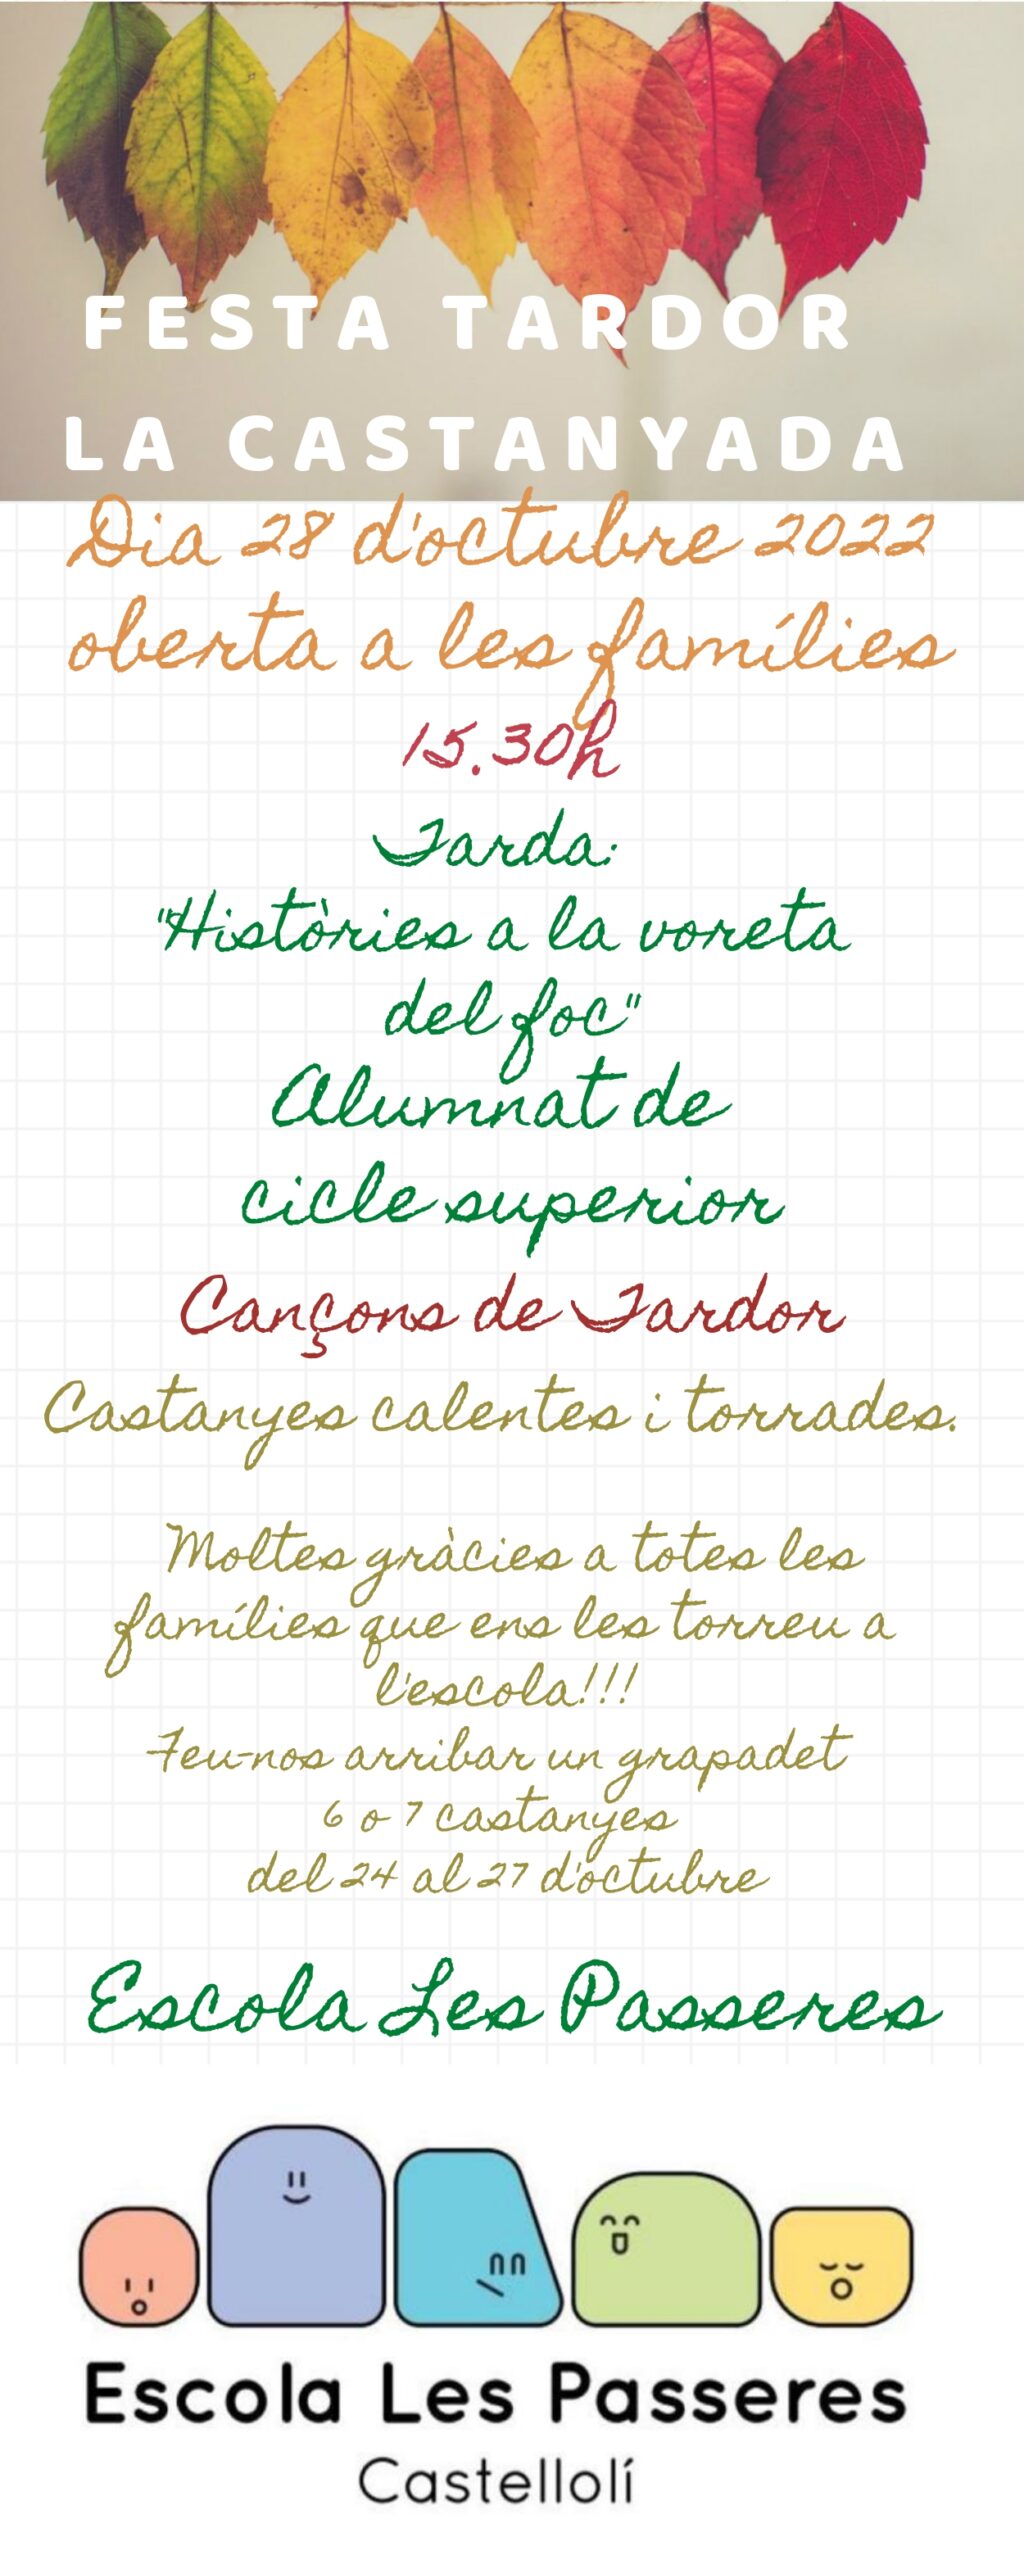 FESTA TARDOR
LA CASTANYADA
Dia 28 d'octubre 2022
oberta a les famílies
15.30h
Tarda:
"Històries a la voreta
del foc"
Alumnat de
cicle superior
Cançons de Tardor
Castanyes calentes i torrades.
Moltes gràcies a totes les
famílies que ens les torreu a
l'escola!!!
Feu-nos arribar un grapadet
6 o 7 castanyes
del 24 al 27 d'octubre
Escola Les Passeres
Escola Les Passeres
Castellolí